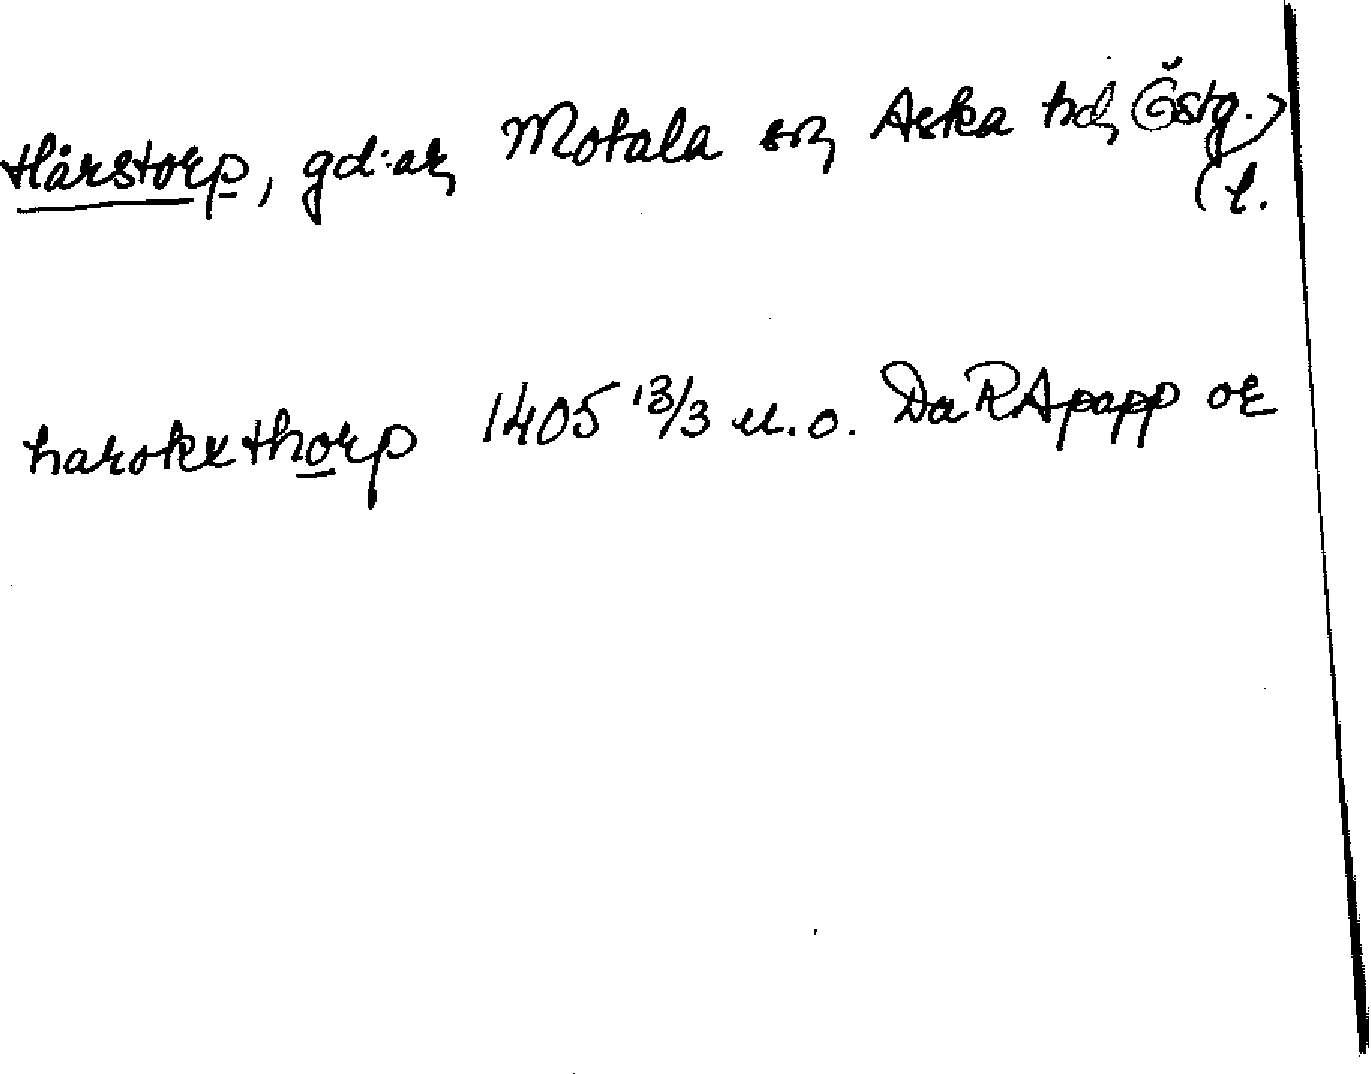 Hårstorp, gd:ar, Motala sn, Aska hd, Östg.
l.
harokxthorp 1405 13/3 u.o. Da RApapp or